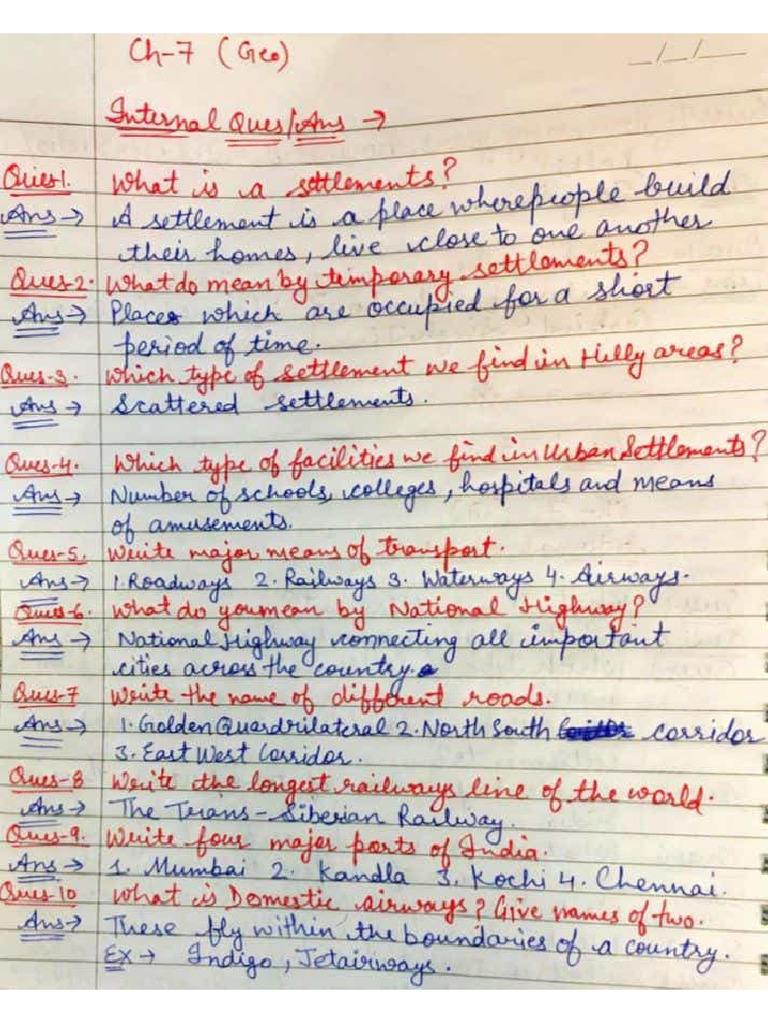 Ch-7 (Geo)
__/__/__
Internal Ques/Ans →
Ques1. What is a settlements?
Ans → A settlement is a place where people build
their homes, live close to one another
Ques-2. What do mean by temporary settlements?
Ans → Places which are occupied for a short
period of time.
Ques-3. Which type of settlement we find in Hilly areas?
Ans → Scattered settlements.
Ques-4. Which type of facilities we find in Urban Settlements?
Ans → Number of schools, colleges, hospitals and means
of amusements.
Ques-5. Write major means of transport.
Ans → 1. Roadways 2. Railways 3. Waterways 4. Airways.
Ques-6. What do you mean by National Highway?
Ans → National Highway connecting all important
cities across the country.
Ques-7 Write the name of different roads.
Ans → 1. Golden Quardrilateral 2. North South corridor
3. East West Corridor.
Ques-8 Write the longest railways line of the world.
Ans → The Trans-Siberian Railway.
Ques-9. Write four major ports of India.
Ans → 1. Mumbai 2. Kandla 3. Kochi 4. Chennai.
Ques-10 What is Domestic airways? Give names of two.
Ans → These fly within the boundaries of a country.
EX → Indigo, Jetairways.